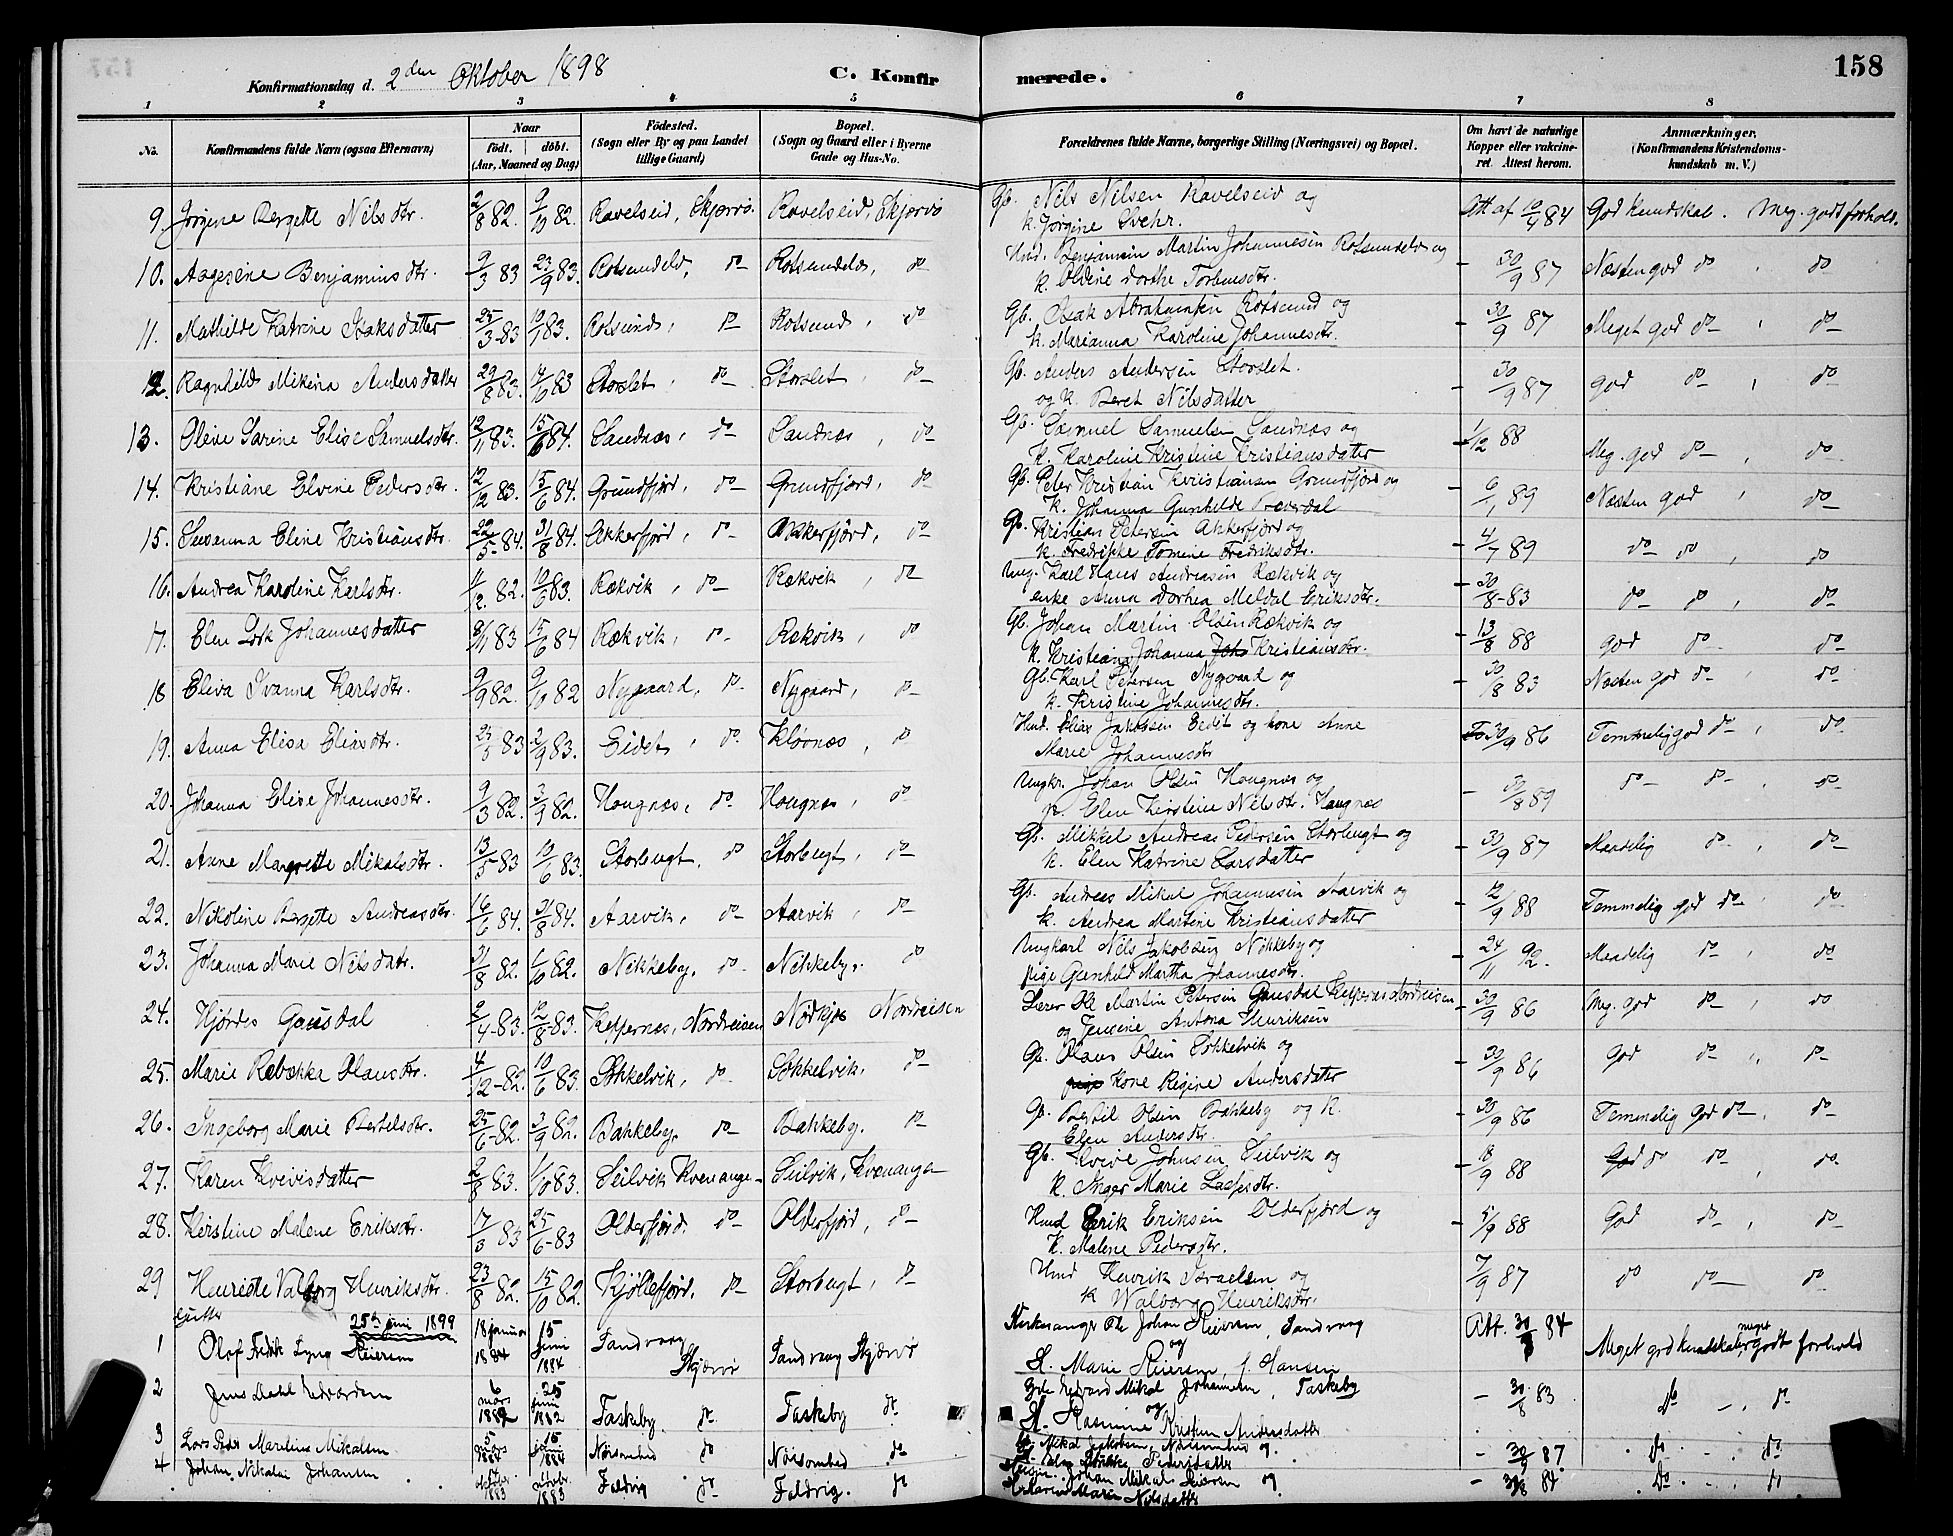 Konfirmationsdag d. 2den Oktober 1898
C. Konfirmerede.
158
1 2 3 4 5 6 7 8
No. Konfirmandens fulde Navn (ogsaa Efternavn) Naar født. døbt. (Aar, Maaned og Dag) Fødested. (Sogn eller By og paa Landet tillige Gaard) Bopæl. (Sogn og Gaard eller i Byerne Gade og Hus-No. Forældrenes fulde Navne, borgerlige Stilling (Næringsvei) og Bopæl. Om havt de naturlige Kopper eller vakcineret. Attest herom. Anmærkninger. (Konfirmandens Kristendomskundskab m. V.)
9. Jørgine Bergette Nilsdtr. 2/8 82. 9/10 82. Ravelseid, Skjervø. Ravelseid, Skjervø Gb. Nils Nilsen Ravelseid og Att af 10/4 84 God kundskab. Meg. godt forhold.
k. Jørgine
10. Aagesine Benjaminsdtr. 9/3 83 23/9 83. Rotsundeld, do Rotsundeld, do Hmd. Benjamin Martin Johannesen Rotsundelv og - 30/9 87 Næsten god do , do
k. Oldine Dorthe Torbensdtr.
11. Mathilde Katrine Isaksdatter 25/3-83 10/ 83. Rotsund, do Rotsund, do Gb. Isak Abrahamsen Rotsund og - 30/9 87 Meget god do , do
k. Marianna Karoline Johannesdtr.
12. Ragnhild Mikina Andersdatter 29/8 83. 14/10 83 Storslet, do Storslet do Gb. Anders Andersen Storslet. - 30/9 87 god do , do
og k. Beret Nilsdatter
13. Oleine Sarine Elise Samuelsdtr. 12/11 83. 15/6 84. Sandnæs, do Sandnæs, do Gb. Samuel Samuelsen Sandnæs og - 1/12 88 Meg. god do , do
k. Karoline Kristine Kristiansdatter
14. Kristiane Elvine Pedersdtr. 12/12 83. 15/6 84. Grundfjord, do Grundfjord, do Gb. Peter Kristian Kristiansen Grundfjord og - 6/1 89 Næsten god , do
k. Johanna Gunhilde
15. Susanna Eline Kristiansdtr. 22/5-84. 31/8 84. Akkerfjord, do Akkerfjord, do Gb. Kristian Petersen Akkerfjord og - 4/7 89 do do , do
k. Fredrikke Tomine Fredriksdtr.
16. Andrea Karoline Karlsdtr. 11/12. 82. 10/6 83. Rækvik, do Rækvik, do Ung. Karl Hans Andreasen Rækvik og - 30/8-83 do do , do
enke Anna Dorhea Meldal Eriksdtr.
17. Elen Johannesdatter 8/11 83 15/6 84 Rækvik, do Rækvik, do Gb. Johan Martin Olsen Rækvik og - 13/8 88 god do do
k. Kristiane Johanna Kristiansdtr.
18 Eliva Ivanna Karlsdtr. 9/9 82. 9/10 82 Nygaard, do Nygaard, do Gb. Karl Petersen Nygaard og - 30/8 83 Næsten god do , do
k. Kristine Johannesdtr.
19. Anna Elisa Eliasdtr. 25/5 83 2/9 83. Eidet, do. Kløvnæs, do Hmd. Elias Jakobsen Eidet og kone Anne 30/9 86 Temmelig god do , do
Marie Johannesdtr
20. Johanna Elise Johannesdtr. 9/3 82. 3/9 82. Hougnæs, do Hougnæs, do Ungkr. Johan Olsen Hougnæs og - 30/8 89 do do , do
p. Elen Kirstine Nilsdtr. Hougnæs
21. Anne Margrette Mikalsdtr. 13/5 83 10/6 83. Storbugt, do Storbugt, do Gb. Mikkel Andreas Pedersen Storbugt og - 30/9 87 Maadelig do , do
k. Elen Katrine Larsdatter
22. Nikoline Bergette Andreasdtr. 16/6 84. 31/8 84. Aarvik, do Aarvik, do Gb. Andreas Mikal Johannesen Aarvik og - 12/9 88 Temmelig god do , do
k. Andrea Martine Kristiansdatter
23. Johanna Marie Nilsdatr. 31/8 82. 1/10 82. Nikkeby, do Nikkeby, do Ungkarl Nils Jakobsen Nikkeby og - 24/11 92. Maadelig do , do
pige Gunhild Martha Johannesdtr.
24. Hjørdis Gausdal 2/4-83. 12/8-83. Keppernæs, Nordreisen Nordkjos Nordreisen Lærer Ole Martin Petersen Gausdal Keppernæs Nordreisen - 30/9 86 Meg. god do , do
og Jensine Antona Henriksen
25. Marie Rebekka Olausdtr. 4/12-82. 10/6 83. Søkkelvik, do Søkkelvik, do Gb. Olaus Olsen Søkkelvik og - 30/9 86 God do , do
kone Regine Andersdatter
26. Ingeborg Marie Bertelsdtr. 25/6-82. 3/9 82. Bakkeby, do Bakkeby, do Gb. Bertil Olsen Bakkeby og k. - 30/9 86 Temmelig god do , do
Elen Andersdtr.
27. Karen Kvivisdatter 2/8 83. 1/10 83. Seilvik Kvenange- Seilvik, Kvænangen Gb. Kvive Johnsen Seilvik og - 18/9 88 God do do , do
k. Inger Marie
28. Kirstine Malene Eriksdtr. 17/3 83 25/6-83 Olderfjord, do Olderfjord, do Hmd Erik Eriksen Olderfjord og - 5/9 88 God do , do
k. Malene Pedersdtr.
29 Henriette Valborg Henriksdtr. 23/8 82. 15/10 82. Kjøllefjord, do Storbugt, do Hmd Henrik Israelsen og 7/9 87 do do do
k Walborg Henriksdtr.
Gutter 25de juni 1899
1 Olaf Fredik Lyng Reiersen 18 januar 1884 15 juni 1884 Sandvaag Skjervø Sandvaag Skjærvø Kirkesanger Ole Johan Reiersen, Sandvaag Att. 30/8 84 Meget god kundskab, meget godt forhold
og
K. Marie Reiersen, f. Hansen
2 Jens Dahl Edvardsen 6 mars 1882 25 juni 1882 Taskeby do Taskeby do Gbr Edvard Mikal Johannesen, Taskeby - 30/8 83 do , do
og
K. Rasmine Kristine Andersdatter
3 Lars Peder Marelius Mikalsen 5 mars 1884 15 juni 1884 Nøisomhed do Nøisomhed do Gb. Mikal Jakobsen, Nøisomhed og - 30/9 87 do do
Pedersdatter
4 Johan Nikolai Johansen 1883 1883 Faldvig do Faldvig. do Johan Mikal Reiersen og - 30/8 84 do , do
Maren Marie Nilsdatter